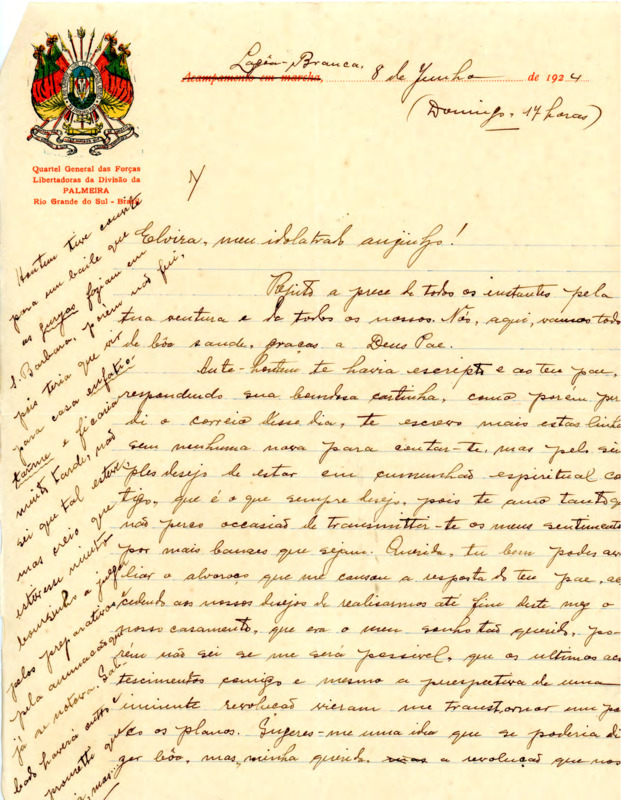 Lagôa-Branca,
Acampamento em marcha, 8 de Junho de 1924
(Domingo, 17 horas)
Quartel General das Forças
Libertadoras da Divisão da
PALMEIRA
Rio Grande do Sul - Brasil
Elvira, meu idolatrado anjinho!
Repito a prece de todos os instantes pela
tua ventura e de todos os nossos. Nós, aqui, vamos todos
de bôa saude, graças a Deus Pae.
Ante-hontem te havia escripto e ao teu pae,
respondendo sua bondosa cartinha, como porém per
di o correio desse dia, te escrevo mais estas linha
sem nenhuma nova para contar-te, mas pelo sim
ples desejo de estar em communhão espiritual co
tigo, que é o que sempre desejo, pois te amo tanto q
não perco occasião de transmittir-te os meus sentimento
por mais banaes que sejam. Querida, tu bem podes ava
liar o alvoroço que me causou a resposta do teu pae, ac
cedendo aos nossos desejos de realisarmos até fim deste mez o
nosso casamento, que era o meu sonho tão querido, po
rém não sei se me será possivel, que os ultimos aco
tescimentos comigo e mesmo a perspectiva de uma
iminente revolução vieram me transtornar um po
co os planos. Sugeres-me uma idea que se poderia di
zer bôa, mas, minha querida, a revolução que nos
Hontem tive convite
para um baile que
as forças faziam em
S. Barbara, porém não fui,
pois teria que vir
para casa
e ficaria
muito tarde; não
sei que tal esteve
mas creio que
estevem muito
bonsinho a julgar
pelos preparativos
pela animação que
já se notava. Sab
bado haverá outro
prometto que
mas